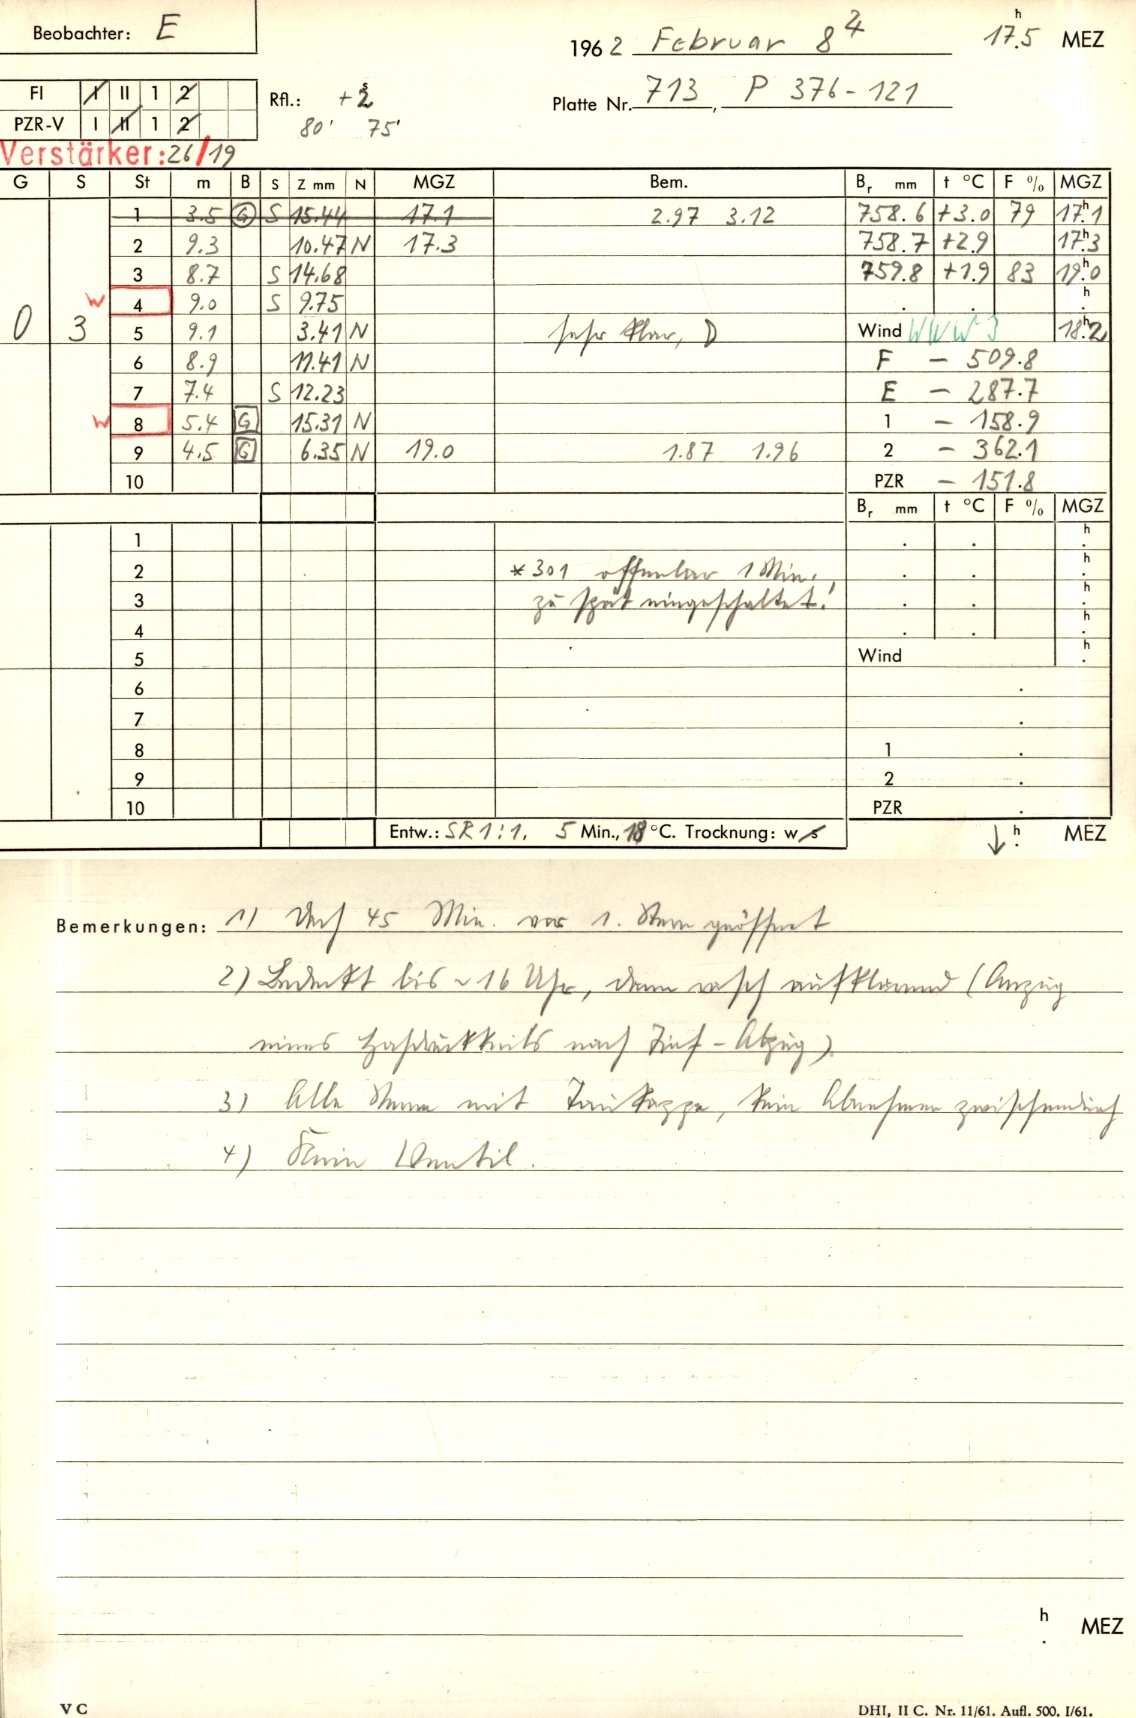 Beobachter: E
1962 Februar 8 17.5 h MEZ
FI I II 1 2
Rfl.: +2
PZR-V I II 1 2
80' 75'
Platte Nr. 713, P 376-121
Verstärker: 26/19
G S St m B S Z mm N MGZ Bem. Br mm t °C F % MGZ
1 3.5 G S 15.44 17.1 2.97 3.12 758.6 +3.0 79 17.1 h
2 9.3 10.47 N 17.3 758.7 +2.9 17.3 h
3 8.7 S 14.68 759.8 +1.9 83 19.0 h
w 4 9.0 S 9.75 . . h .
0 3 5 9.1 3.41 N sehr klar, Wind WWW 3 18.2 h
6 8.9 11.41 N F – 509.8
7 7.4 S 12.23 E – 287.7
w 8 5.4 G 15.31 N 1 – 158.9
9 4.5 G 6.35 N 19.0 1.87 1.96 2 – 362.1
10 PZR – 151.8
Br mm t °C F % MGZ
1 . . h .
2 *301 offenbar 1 Min. . . h .
3 zu spät eingeschaltet! . . h .
4 . . h .
5 Wind h .
6 .
7 .
8 1 .
9 2 .
10 PZR .
Entw.: SR 1:1, 5 Min., 18 °C. Trocknung: w s ↓ h . MEZ
Bemerkungen: 1) Dach 45 Min. vor 1. Stern geöffnet
2) Bedeckt bis ~ 16 Uhr, dann rasch aufklarend (Anzug
eines Hochdruckkeils nach Tief-Abzug)
3) Alle Sterne mit Taukappe, kein Abnehmen zwischendurch
4) Kein Ventil.
h . MEZ
V C
DHI, II C. Nr. 11/61. Aufl. 500. I/61.